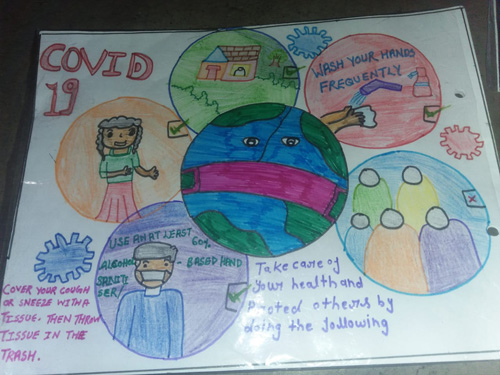 COVID
19
WASH YOUR HANDS
FREQUENTLY
USE AN AT LEAST
60%
ALCOHOL BASED HAND
SANITI
SER
COVER YOUR COUGH
OR SNEEZE WITH A
TISSUE. THEN THROW
TISSUE IN THE
TRASH.
Take care of
your health and
proted otheurs by
doing the following